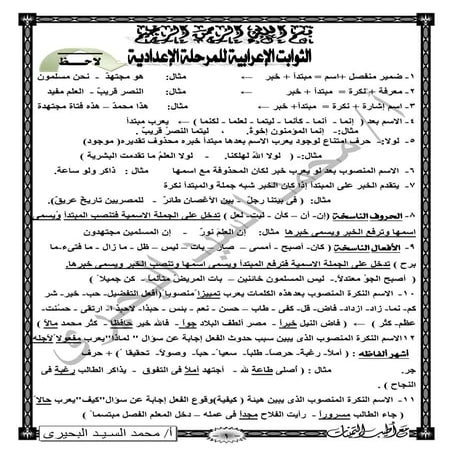 بسم الله الرحمن الرحيم
الثوابت الإعرابية للمرحلة الإعدادية
لاحظ
١- ضمير منفصل +اسم = مبتدأ + خبر ← مثال: هو مجتهدٌ - نحن مسلمون
٢- معرفة + نكرة = مبتدأ+ خبر ← مثال: النصر قريبٌ - العلم مفيد
٣- اسم إشارة + نكرة = مبتدأ + خبر ← مثال: هذا محمدٌ – هذه فتاة مجتهدة
٤- الاسم بعد ( إنما - أنما - كأنما - ليتما - لعلما - لكنما ) ← يعرب مبتدأ
مثال:- إنما المؤمنون إخوة. ليتما النصر قريبٌ.
٥- لولا: حرف امتناع لوجود يعرب الاسم بعدها مبتدأ خبره محذوف تقديره (موجود)
مثال:-( لولا اللهُ لهلكنا. لولا العلمُ ما تقدمت البشرية )
٦- الاسم المنصوب بعد لو يعرب خبر لكان المحذوفة مع اسمها مثال: ذاكر ولو ساعة.
٧- يتقدم الخبر على المبتدأ إذا كان الخبر شبه جملة والمبتدأ نكرة
مثال: ( في بيتنا رجلٌ. بين الأغصان طائرٌ - للمصريين تاريخٌ عريقٌ).
٨- الحروف الناسخة (إن- أن – كأن - ليت- لعل ) تدخل على الجملة الاسمية فتنصب المبتدأ ويسمى
اسمها وترفع الخبر ويسمى خبرها مثال: إن العلم نورٌ - إن المسلمين مجتهدون
٩- الأفعال الناسخة (كان- أصبح- أمسى – صار – بات - ليس – ظل - ما زال – ما فتىء-ما
برح ) تدخل على الجملة الاسمية فترفع المبتدأ ويسمى اسمها وتنصب الخبر ويسمى خبرها.
( أصبح الجوُ معتدلاً.- ليس المسلمون خائنين – بات المريضُ متألماً- كن جميلاً )
١٠- الاسم النكرة المنصوب بعد هذه الكلمات يعرب تمييزاً منصوبا (أفعل التفضيل- حب- خير- شر
كم- نما- زاد- ازداد- فاض- قل- كفى – طاب – حسن - نعم – بئس – حبذا- لاحبذا- ارتقى – حسنت-
عظم- كثر ) ← ( فاض النيل خيراً – مصر ألطف البلاد جواً – فالله خير حافظاً – كثر محمد مالاً )
١٠- الاسم النكرة المنصوب الذى يبين سبب حدوث الفعل إجابة عن سؤال " لماذا "يعرب مفعولا لأجله
أشهر ألفاظه: ( أملا- رغبة- حرصا- طلبا- سعيا- حبا- وصولا- تحقيقا ) + حرف
جر. مثال: ( أصلى طاعة لله - أجتهد أملاً فى التفوق - يذاكر الطالب رغبة فى
النجاح )
١١- الاسم النكرة المنصوب الذى يبين هيئة (كيفية)وقوع الفعل إجابة عن سؤال"كيف"يعرب حالاً
( جاء الطالب مسروراً - رأيت الفلاح مجداً فى عمله – دخل المعلم الفصل مبتسما )
مع أطيب التمنيات
١
أ/ محمد السيد البحيرى